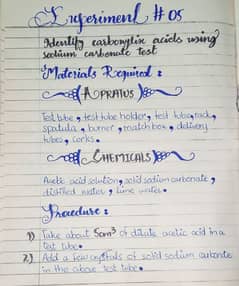 Experiment # 05
Identify carboxylix acids using
sodium carbonate test
Materials Required :
APRATUS
Test tube, test tube holder, test tube rack,
spatula, burner, matchbox, delivery
tubes, corks.
CHEMICALS
Acetic acid solution, solid sodium carbonate,
distilled water, lime water.
Procedure :
1) Take about 5cm³ of dilute acetic acid in a
test tube.
2) Add a few crystals of solid sodium carbonate
in the above test tube.